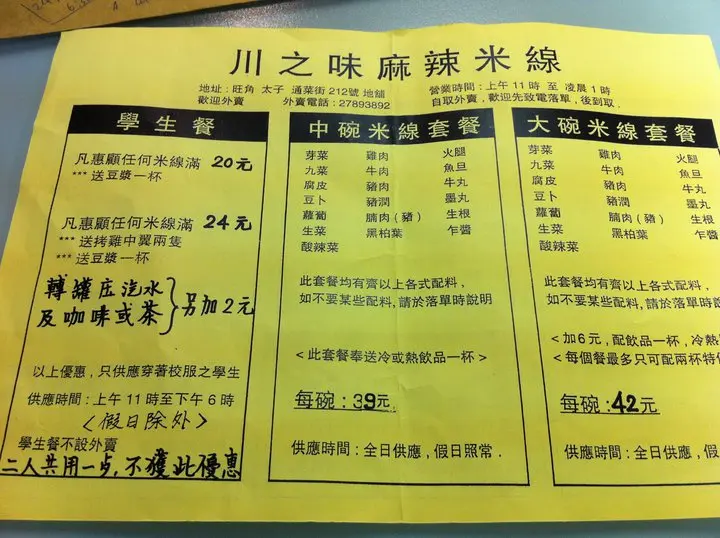 川之味麻辣米線
地址：旺角 太子 通菜街 212號 地舖
歡迎外賣 外賣電話：27893892
營業時間：上午 11 時 至 凌晨 1 時
自取外賣，歡迎先致電落單，後到取．
學生餐
凡惠顧任何米線滿 20元
*** 送豆漿一杯
凡惠顧任何米線滿 24元
*** 送拷雞中翼兩隻
*** 送豆漿一杯
轉罐庄汽水
及咖啡或茶 } 另加2元
以上優惠，只供應穿著校服之學生
供應時間：上午 11 時至下午 6 時
＜假日除外＞
學生餐不設外賣
二人共用一点，不獲此優惠
中碗米線套餐
芽菜 雞肉 火腿
九菜 牛肉 魚旦
腐皮 豬肉 牛丸
豆卜 豬潤 墨丸
蘿蔔 腩肉（豬） 生根
生菜 黑柏葉 乍醬
酸辣菜
此套餐均有齊以上各式配料，
如不要某些配料，請於落單時說明
＜此套餐奉送冷或熱飲品一杯＞
每碗：39元
供應時間：全日供應，假日照常．
大碗米線套餐
芽菜 雞肉 火腿
九菜 牛肉 魚旦
腐皮 豬肉 牛丸
豆卜 豬潤 墨丸
蘿蔔 腩肉（豬） 生根
生菜 黑柏葉 乍醬
酸辣菜
此套餐均有齊以上各式配料，
如不要某些配料，請於落單時
＜加6元，配飲品一杯，冷熱
＜每個餐最多只可配兩杯特
每碗：42元
供應時間：全日供應，假